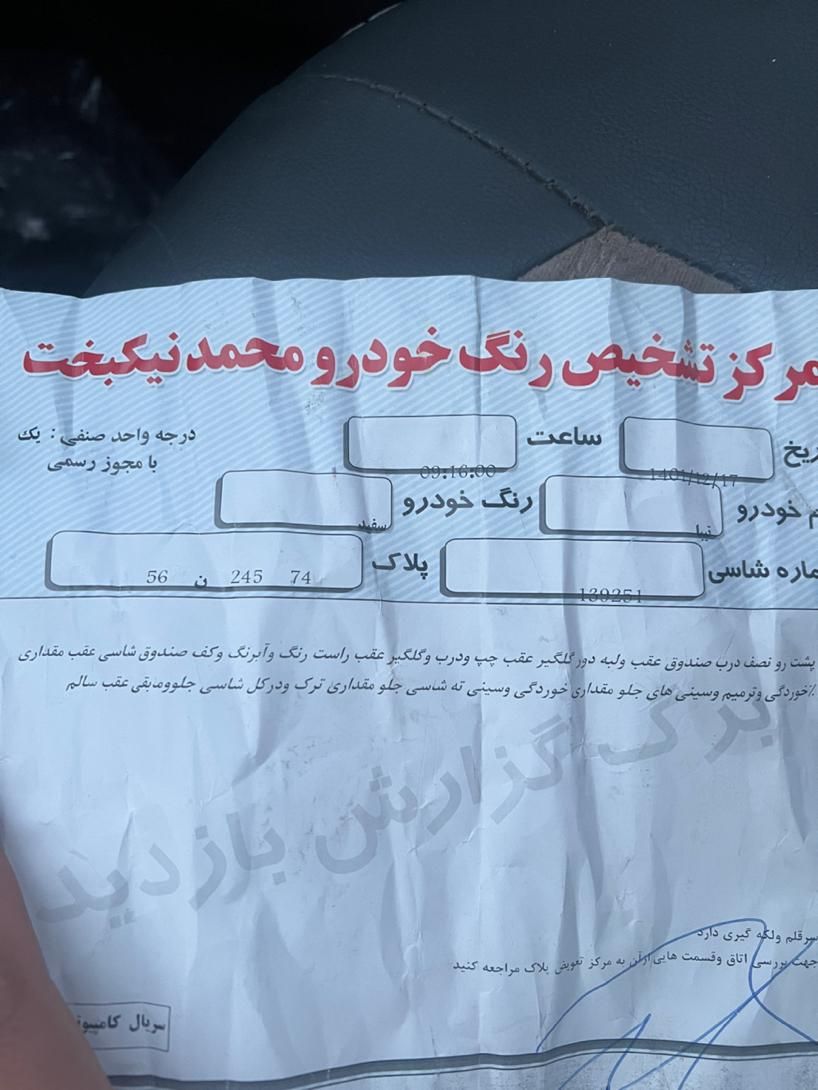 مرکز تشخیص رنگ خودرو محمد نیکبخت
ریخ 1401/12/17 ساعت 09:16:00 درجه واحد صنفی : یک
با مجوز رسمی
م خودرو تیبا رنگ خودرو سفید
ماره شاسی 139251 پلاک 74 245 ن 56
پشت رو نصف درب صندوق عقب ولبه دور گلگیر عقب چپ ودرب وگلگیر عقب راست رنگ وآبرنگ وکف صندوق شاسی عقب مقداری
خوردگی وترمیم وسینی های جلو مقداری خوردگی وسینی ته شاسی جلو مقداری ترک ودرکل شاسی جلوومابقی عقب سالم
برگ گزارش بازدید
سرقلم ولکه گیری دارد
جهت بررسی اتاق وقسمت هایی ازآن به مرکز تعویض پلاک مراجعه کنید
سریال کامپیوت